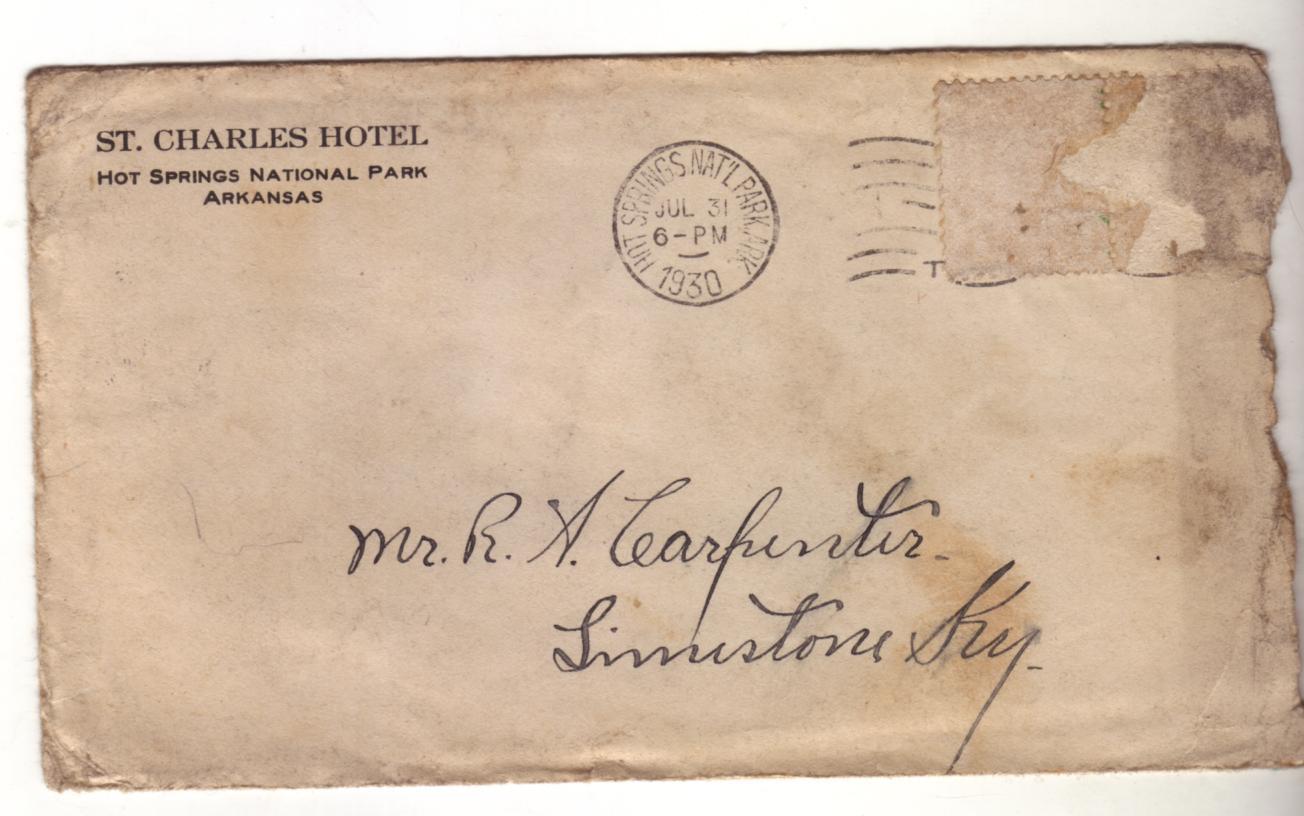 ST. CHARLES HOTEL
HOT SPRINGS NATIONAL PARK
ARKANSAS
HOT SPRINGS NAT'L PARK, ARK
JUL 31
6-PM
1930
T
Mr. R. A. Carpenter.
Limestone Ky.